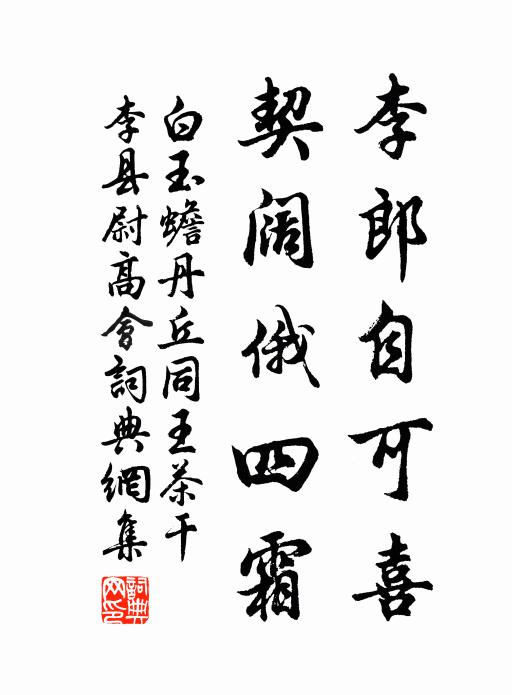 李郎自可喜
契阔俄四霜
白玉蟾丹丘同王茶干
李县尉高會詞典網集
詞典網印